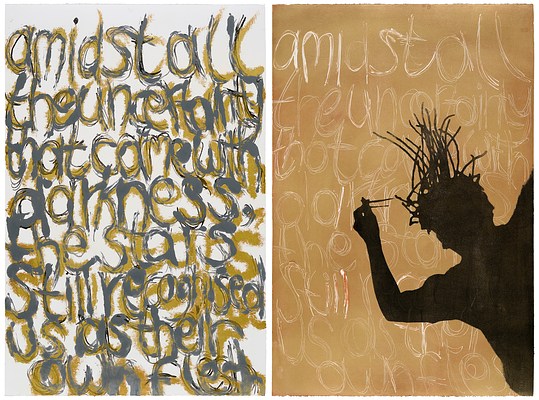 amidst all
the uncertainty
that came with
darkness,
the stars
still recognised
us as their
own flesh
amidst all
the uncertainty
that came with
da
the
still
us as
own